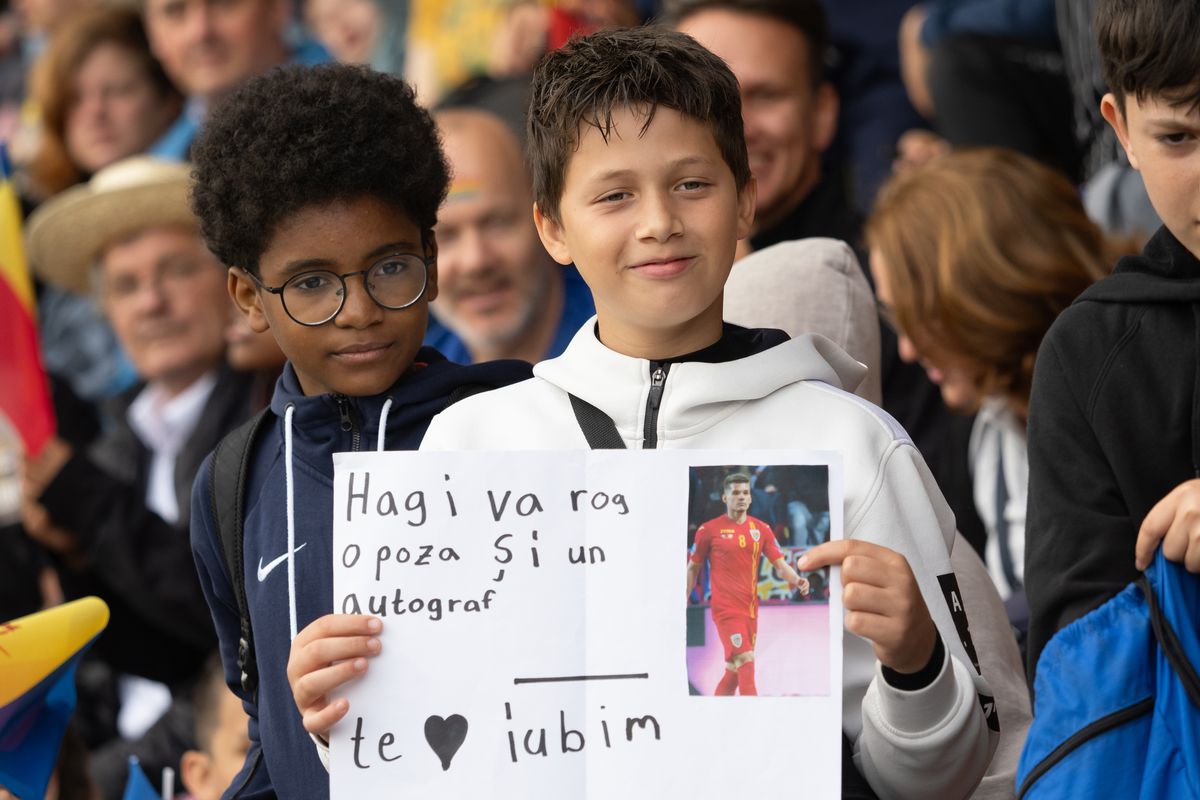 Hagi va rog
o poza și un
autograf
te ♥ iubim
8